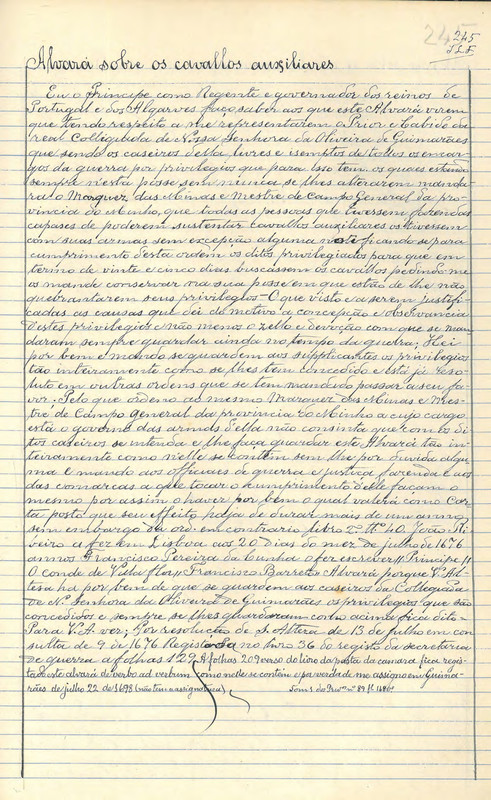 245
245
J.L.F.
Alvará sobre os cavallos auxiliares
Eu o Principe como Regente e governador dos reinos de
Portugal e dos Algarves faço saber aos que este Alvará virem
que tendo respeito a me representarem o Prior e Cabido da
real Collegiada de Nossa Senhora da Oliveira de Guimarães
que sendo os caseiros della livres e isemptos de todos os encar-
gos da guerra por privilegios que para isso tem os quaes estando
sempre n'esta posse sem nunca se lhes alterarem manda-
ra o Marquez das Minas e Mestre de Campo General da pro-
vincia do Minho, que todas as pessoas que tivessem fazendas
capases de poderem sustentar cavallos auxiliares os tivessem
com suas armas sem excepção alguma notificando-se para
cumprimento d'esta ordem os ditos privilegiados para que em
termo de vinte e cinco dias buscassem os cavallos pedindo-me
os mande conservar na sua posse em que estão de lhe não
quebrantarem seus privilegios - O que visto e a serem justifi-
cadas as causas que dei de motivo a concepção e observancia
d'estes privilegios e não menos o zello e devoção com que se man-
daram sempre guardar ainda no tempo da guerra; Hei
por bem e mando se guardem aos supplicantes os privilegios
tão inteiramente como se lhes tem concedido e está já reso-
luto em outras ordens que se tem mandado passar a seu fa-
vor; Pelo que ordeno ao mesmo Marquez das Minas e Mes-
tre de Campo General da provincia do Minho a cujo cargo
está o governo das armas d'ella não consinta que com os di-
tos caseiros se intenda e lhe faça guardar este Alvará tão in-
teiramente como n'elle se contem sem lhe por duvida algu-
ma e mando aos officiaes de guerra e justiça fazenda e aos
das comarcas a que tocar o cumprimento d'elle façam o
mesmo por assim o haver por bem o qual valerá como Car-
ta posto que seu effeito haja de durar mais de um anno
sem embargo da ord. em contrario livro 2º tt.º 40. João Ri-
beiro a fez em Lisboa aos 20 dias do mez de julho de 1676
annos Francisco Pereira da Cunha o fez escrever // Principe //
O conde de Valla flor // Francisco Barreto // Alvará porque V. Al-
tesa ha por bem de que se guardem aos caseiros da Collegiada
de N.ª Senhora da Oliveira de Guimarães os privilegios que são
concedidos e sempre se lhes guardaram como acima fica dito -
Para V. A. ver; Por resolução de S. Altera de 13 de julho em con-
sulta de 9 de 1676 Registada no livro 36 do registo da secretaria
de guerra a folhas 129. A folhas 209 verso do livro da pasta da camara fica regis-
tado este alvará de verbo ad verbum como nelle se contem e por verdade me assigno em Guima-
rães de julho 22 de 1698 (não tem a assignatura)